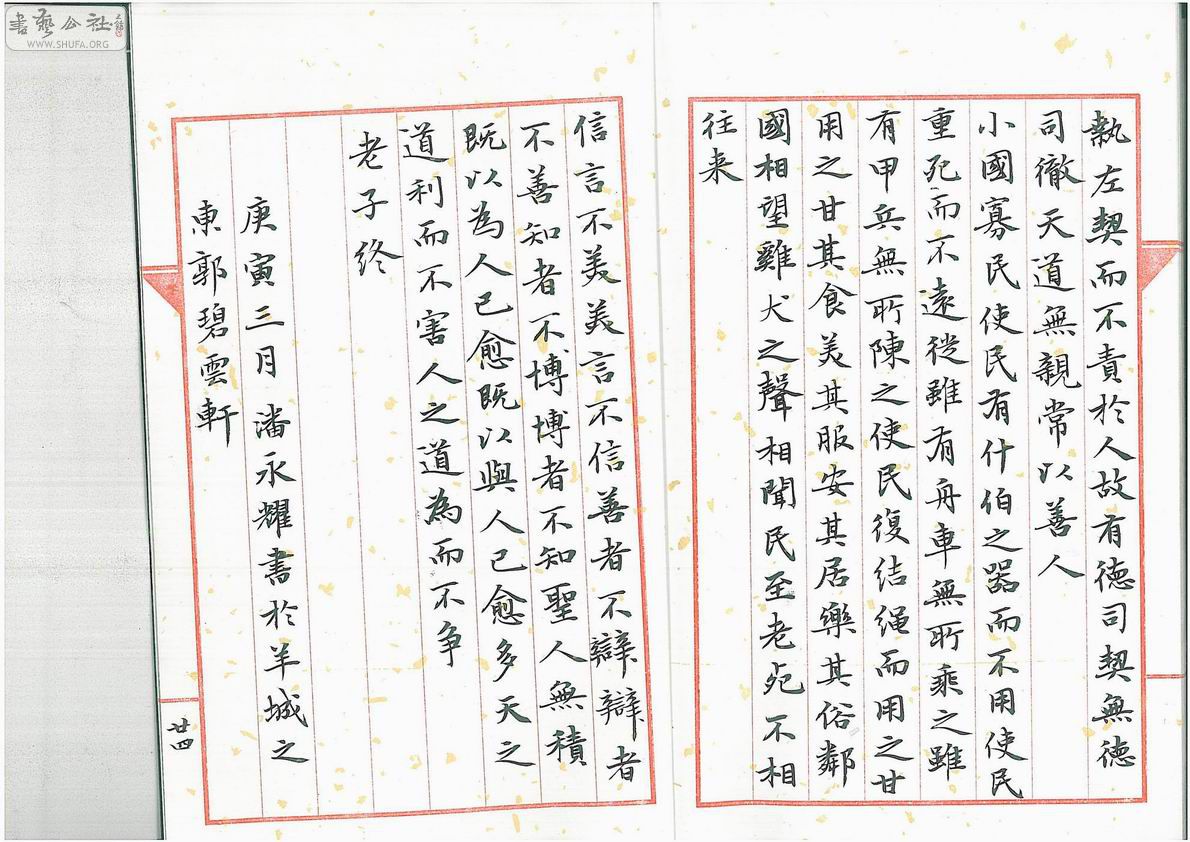 執左契而不責於人故有德司契無德
司徹天道無親常以善人
小國寡民使民有什伯之器而不用使民
重死而不遠徙雖有舟車無所乘之雖
有甲兵無所陳之使民復結繩而用之甘
用之甘其食美其服安其居樂其俗鄰
國相望雞犬之聲相聞民至老死不相
往来
信言不美美言不信善者不辯辯者
不善知者不博博者不知聖人無積
既以為人已愈既以與人已愈多天之
道利而不害人之道為而不争
老子终
庚寅三月潘永耀書於羊城之
東郭碧雲軒
廿四
書藝公社
WWW.SHUFA.ORG